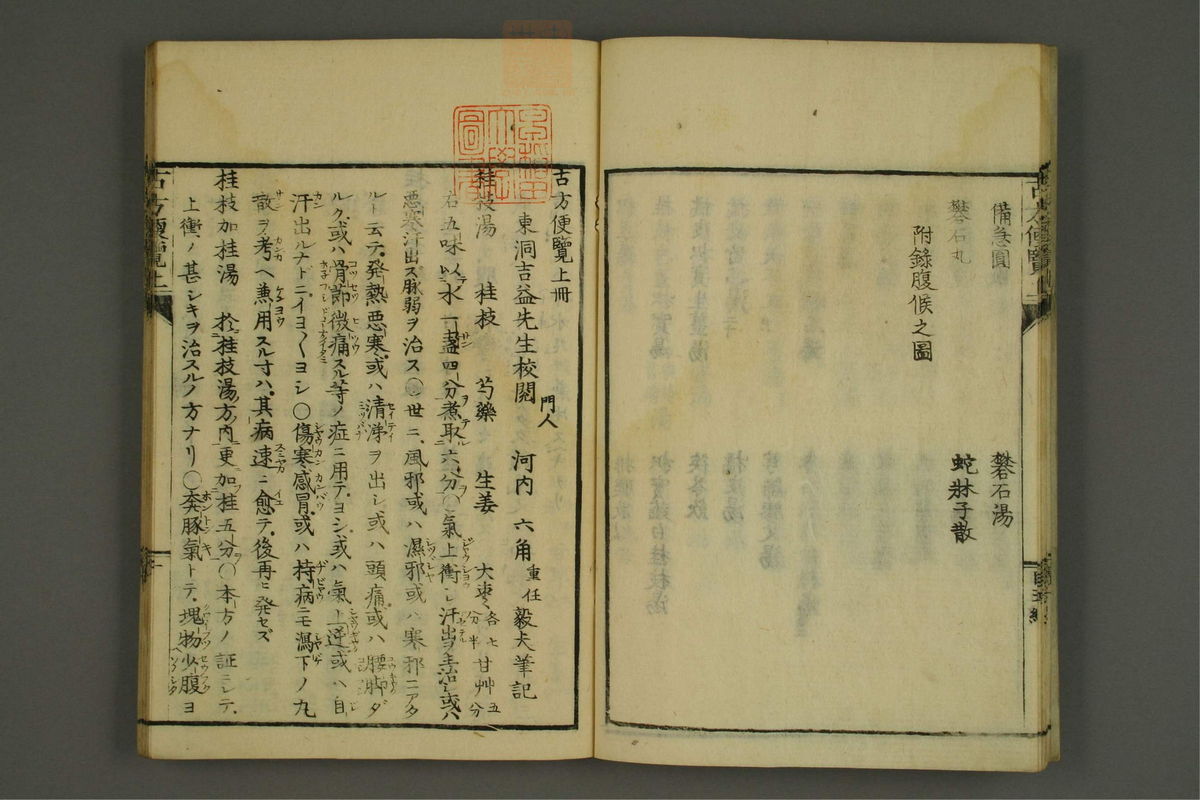 備急圓　礬石湯
礬石丸　蛇牀子散
附錄腹候之圖
古方便覽上冊
東洞吉益先生校閲　門人　河内　六角重任毅夫筆記
桂枝湯　桂枝　芍藥　生姜　大棗各七分半　甘艸五分
右五味以水一盞四分煮取六分〇氣上衝シ汗出ヲ主治シ或ハ
悪寒汗出ス脉弱ヲ治ス〇世ニ風邪或ハ濕邪或ハ寒邪ニアタ
ルト云テ発熱悪寒或ハ清涕ヲ出シ或ハ頭痛或ハ腰脚ダ
ルク或ハ骨節微痛スル等ノ症ニ用テヨシ或ハ氣上逆或ハ自
汗出ルナドニイヨ〱ヨシ〇傷寒感冒或ハ持病ニモ瀉下ノ丸
散ヲ考ヘ兼用スル寸ハ其病速ニ愈テ後再ヒ発セズ
桂枝加桂湯　於桂枝湯方内更加桂五分〇本方ノ証ニシテ
上衝ノ甚シキヲ治スルノ方ナリ〇奔豚氣トテ塊物少腹ヨ
古方便覽上